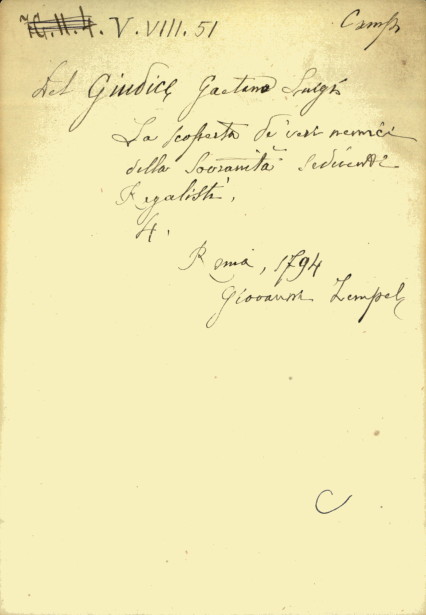 V. VIII. 51
Camp
Del Giudice Gaetano Luigi
La scoperta de' veri nemici
della Sovranità sedicenti
Regalisti.
4.
Roma, 1794
Giovanni Zempel
C